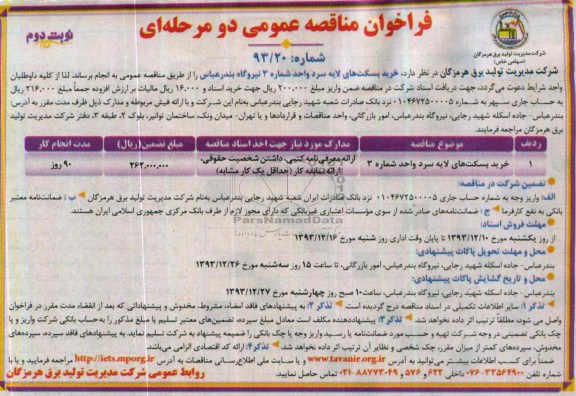 فراخوان مناقصه عمومی دو مرحله‌ای
نوبت دوم
شماره: ۹۳/۲۰
شرکت مدیریت تولید برق هرمزگان
(سهامی خاص)
شرکت مدیریت تولید برق هرمزگان در نظر دارد، خرید بسکت‌های لایه سرد واحد شماره ۳ نیروگاه بندرعباس را از طریق مناقصه عمومی به انجام برساند. لذا از کلیه داوطلبان
واجد شرایط دعوت می‌گردد، جهت دریافت اسناد شرکت در مناقصه ضمن واریز مبلغ ۲۰۰،۰۰۰ ریال جهت خرید اسناد و ۱۶،۰۰۰ ریال مالیات بر ارزش افزوده جمعاً مبلغ ۲۱۶،۰۰۰ ریال
به حساب جاری سپهر به شماره ۰۱۰۴۶۷۲۵۰۰۰۰۵ نزد بانک صادرات شعبه شهید رجایی بندرعباس به‌نام این شرکت و با ارائه فیش مربوطه و مدارک ذیل ظرف مدت مقرر به آدرس:
بندرعباس- جاده اسکله شهید رجایی، نیروگاه بندرعباس، امور بازرگانی، واحد مناقصات و قراردادها و یا تهران- میدان ونک، ساختمان توانیر، بلوک ۲، طبقه ۳، دفتر شرکت مدیریت تولید
برق هرمزگان مراجعه فرمایند.
ردیف موضوع مناقصه مدارک مورد نیاز جهت اخذ اسناد مناقصه مبلغ تضمین(ریال) مدت انجام کار
۱ خرید بسکت‌های لایه سرد واحد شماره ۳ ارائه معرفی‌نامه کتبی، داشتن شخصیت حقوقی، ۲۶۲،۰۰۰،۰۰۰ ۹۰ روز
ارائه سابقه کار (حداقل یک کار مشابه)
تضمین شرکت در مناقصه:
الف: واریز وجه به شماره حساب جاری ۰۱۰۴۶۷۲۵۰۰۰۰۵ نزد بانک صادرات ایران شعبه شهید رجایی بندرعباس به‌نام شرکت مدیریت تولید برق هرمزگان ب: ضمانت‌نامه معتبر
بانکی به نفع کارفرما ج: ضمانت‌نامه‌های صادر شده از سوی مؤسسات اعتباری غیربانکی که دارای مجوز لازم از طرف بانک مرکزی جمهوری اسلامی ایران هستند.
مهلت فروش اسناد:
از روز یکشنبه مورخ ۱۳۹۳/۱۲/۱۰ تا پایان وقت اداری روز شنبه مورخ ۱۳۹۳/۱۲/۱۶
محل و مهلت تحویل پاکات پیشنهادی:
بندرعباس- جاده اسکله شهید رجایی، نیروگاه بندرعباس، امور بازرگانی، تا ساعت ۱۵ روز سه‌شنبه مورخ ۱۳۹۳/۱۲/۲۶
محل و تاریخ گشایش پاکات پیشنهادی:
بندرعباس- جاده اسکله شهید رجایی، نیروگاه بندرعباس، ساعت ۱۰ صبح روز چهارشنبه مورخ ۱۳۹۳/۱۲/۲۷
تذکر ۱: سایر اطلاعات تکمیلی در اسناد مناقصه درج گردیده است تذکر ۲: به پیشنهادهای فاقد امضاء، مشروط، مخدوش و پیشنهاداتی که بعد از انقضاء مدت مقرر در فراخوان
واصل می شود، مطلقاً ترتیب اثر داده نخواهد شد. تذکر ۳: پیشنهاددهنده مکلف است معادل مبلغ سپرده، تضمین‌های معتبر تسلیم یا مبلغ مذکور را به‌حساب بانکی شرکت واریز و یا
چک بانکی تضمینی در وجه شرکت تهیه و حسب مورد ضمانت‌نامه یا رسید واریز وجه یا چک بانکی را ضمیمه پیشنهاد به شرکت تسلیم نماید. به پیشنهادهای فاقد سپرده، سپرده‌های
مخدوش، سپرده‌های کمتر از میزان مقرر، چک شخصی و نظایر آن ترتیب اثر داده نخواهد شد. تذکر ۴: ارائه کد اقتصادی الزامی می‌باشد.
ضمناً برای کسب اطلاعات بیشتر می‌توانید به آدرس www.tavanir.org.ir و یا سایت ملی اطلاع‌رسانی مناقصات به آدرس http://iets.mporg.ir مراجعه فرمایید و یا با
تلفن ۳۳۵۶۴۹۰۰-۰۷۶ داخلی ۶۲۲ و ۵۷۶ و ۸۸۷۷۳۰۴۹-۰۲۱ تماس حاصل نمایید.
روابط عمومی شرکت مدیریت تولید برق هرمزگان